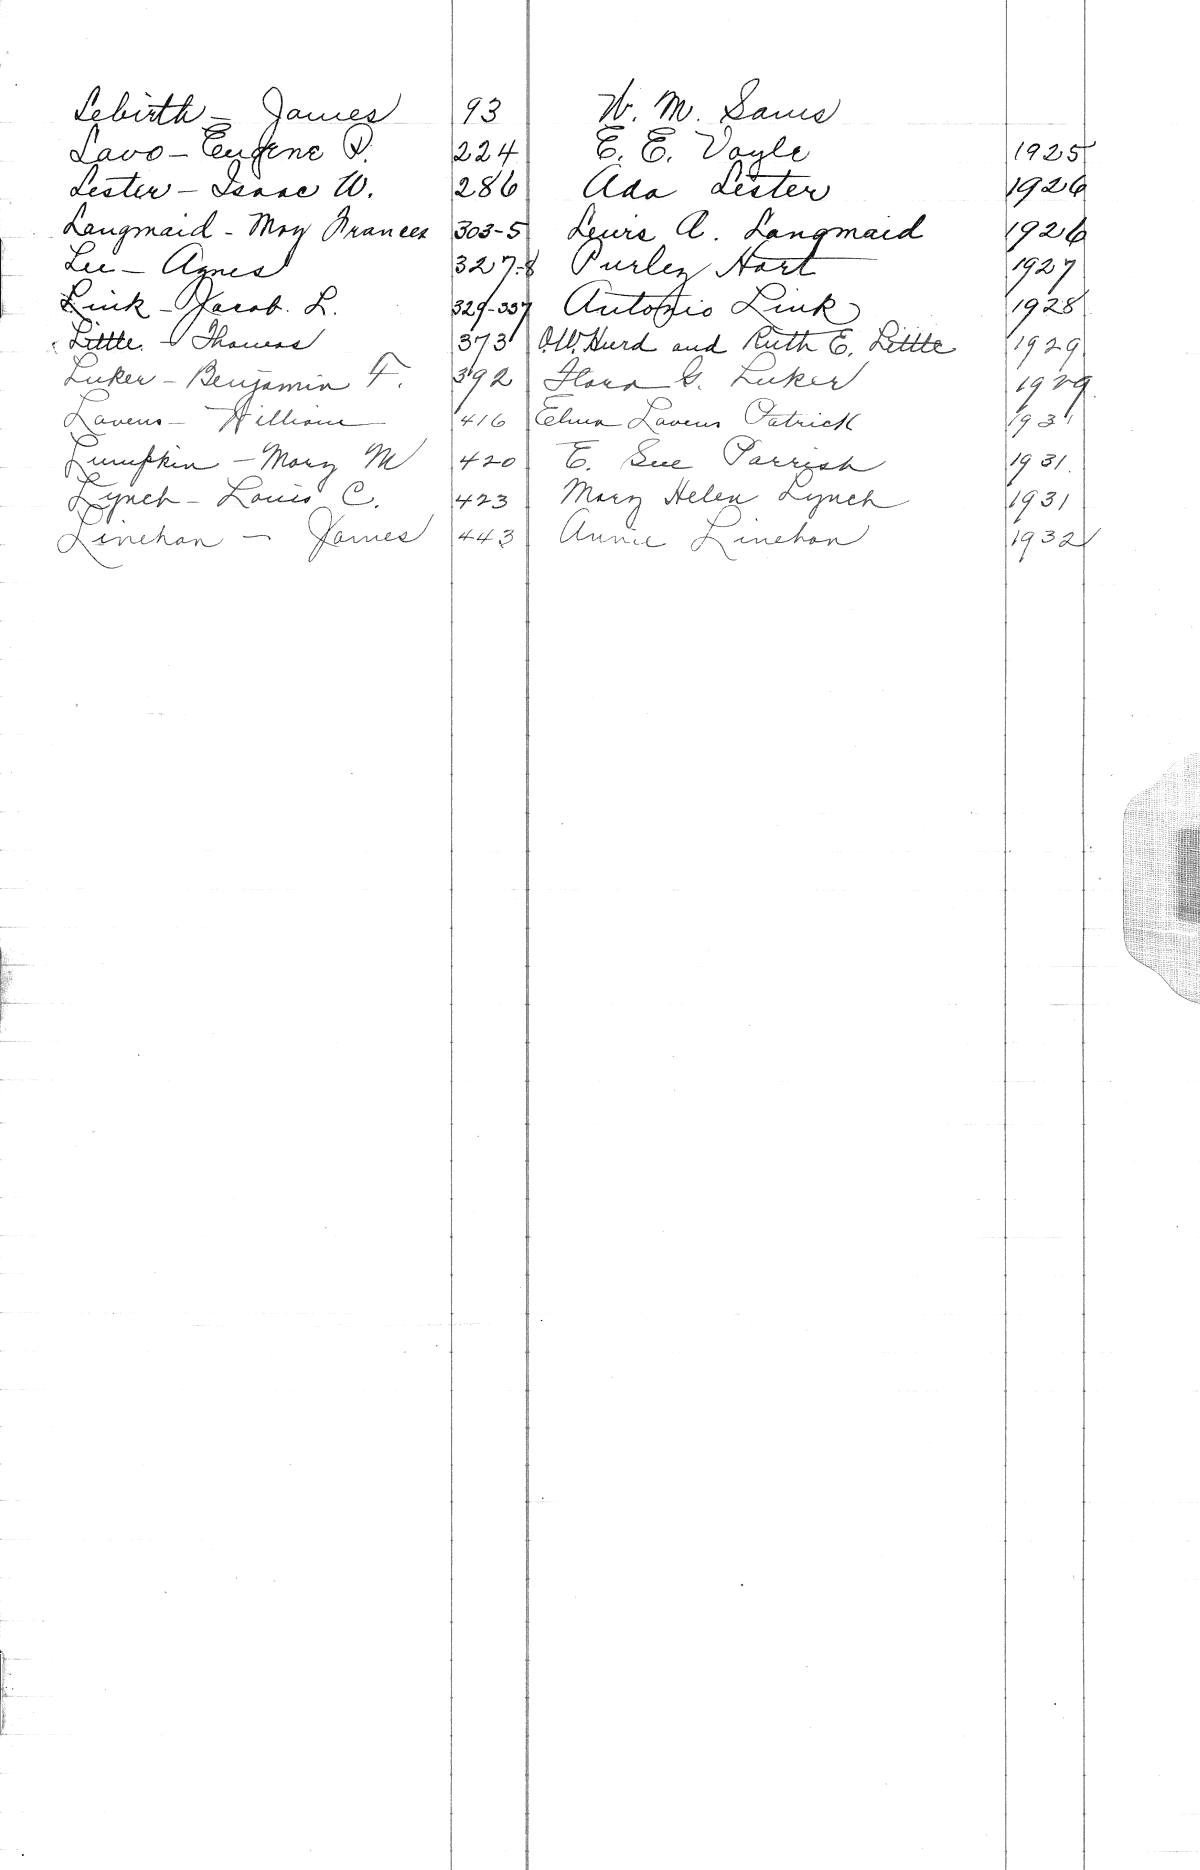 Lebirth - James 93 W. M. Sams
Lavo - Eugene P. 224 E. E. Voyle 1925
Lester - Isaac W. 286 Ada Lester 1926
Langmaid - May Frances 303-5 Lewis A. Langmaid 1926
Lee - Agnes 327-8 Purley Hart 1927
Link - Jacob. L. 329-337 Antonio Link 1928
Little - Thomas 373 O.W. Hurd and Ruth E. Little 1929
Luker - Benjamin F. 392 Flora G. Luker 1929
Lavens - William 416 Elma Lavens Patrick 1931
Lumpkin - Mary M 420 E. Sue Parrish 1931.
Lynch - Louis C. 423 Mary Helen Lynch 1931
Linehan - James 443 Annie Linehan 1932